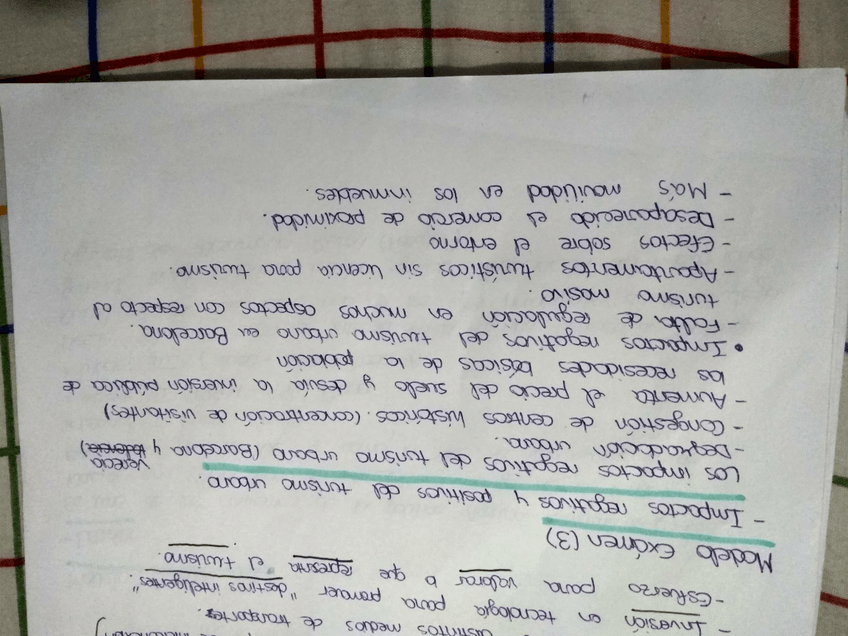 distintos medios de transporte.
- Inversión en tecnología para promover "destinos inteligentes".
- Esfuerzo para valorar lo que representa el turismo.
Modelo Exámen (3)
- Impactos negativos y positivos del turismo urbano.
Los impactos negativos del turismo urbano (Barcelona y Venecia)
- Degradación urbana.
- Congestión de centros históricos. (concentración de visitantes)
- Aumenta el precio del suelo y desvía la inversión pública de
las necesidades básicas de la población
• Impactos negativos del turismo urbano en Barcelona.
- Falta de regulación en muchos aspectos con respecto al
turismo masivo.
- Apartamentos turísticos sin licencia para turismo.
- Efectos sobre el entorno
- Desaparecido el comercio de proximidad.
- Más movilidad en los inmuebles.